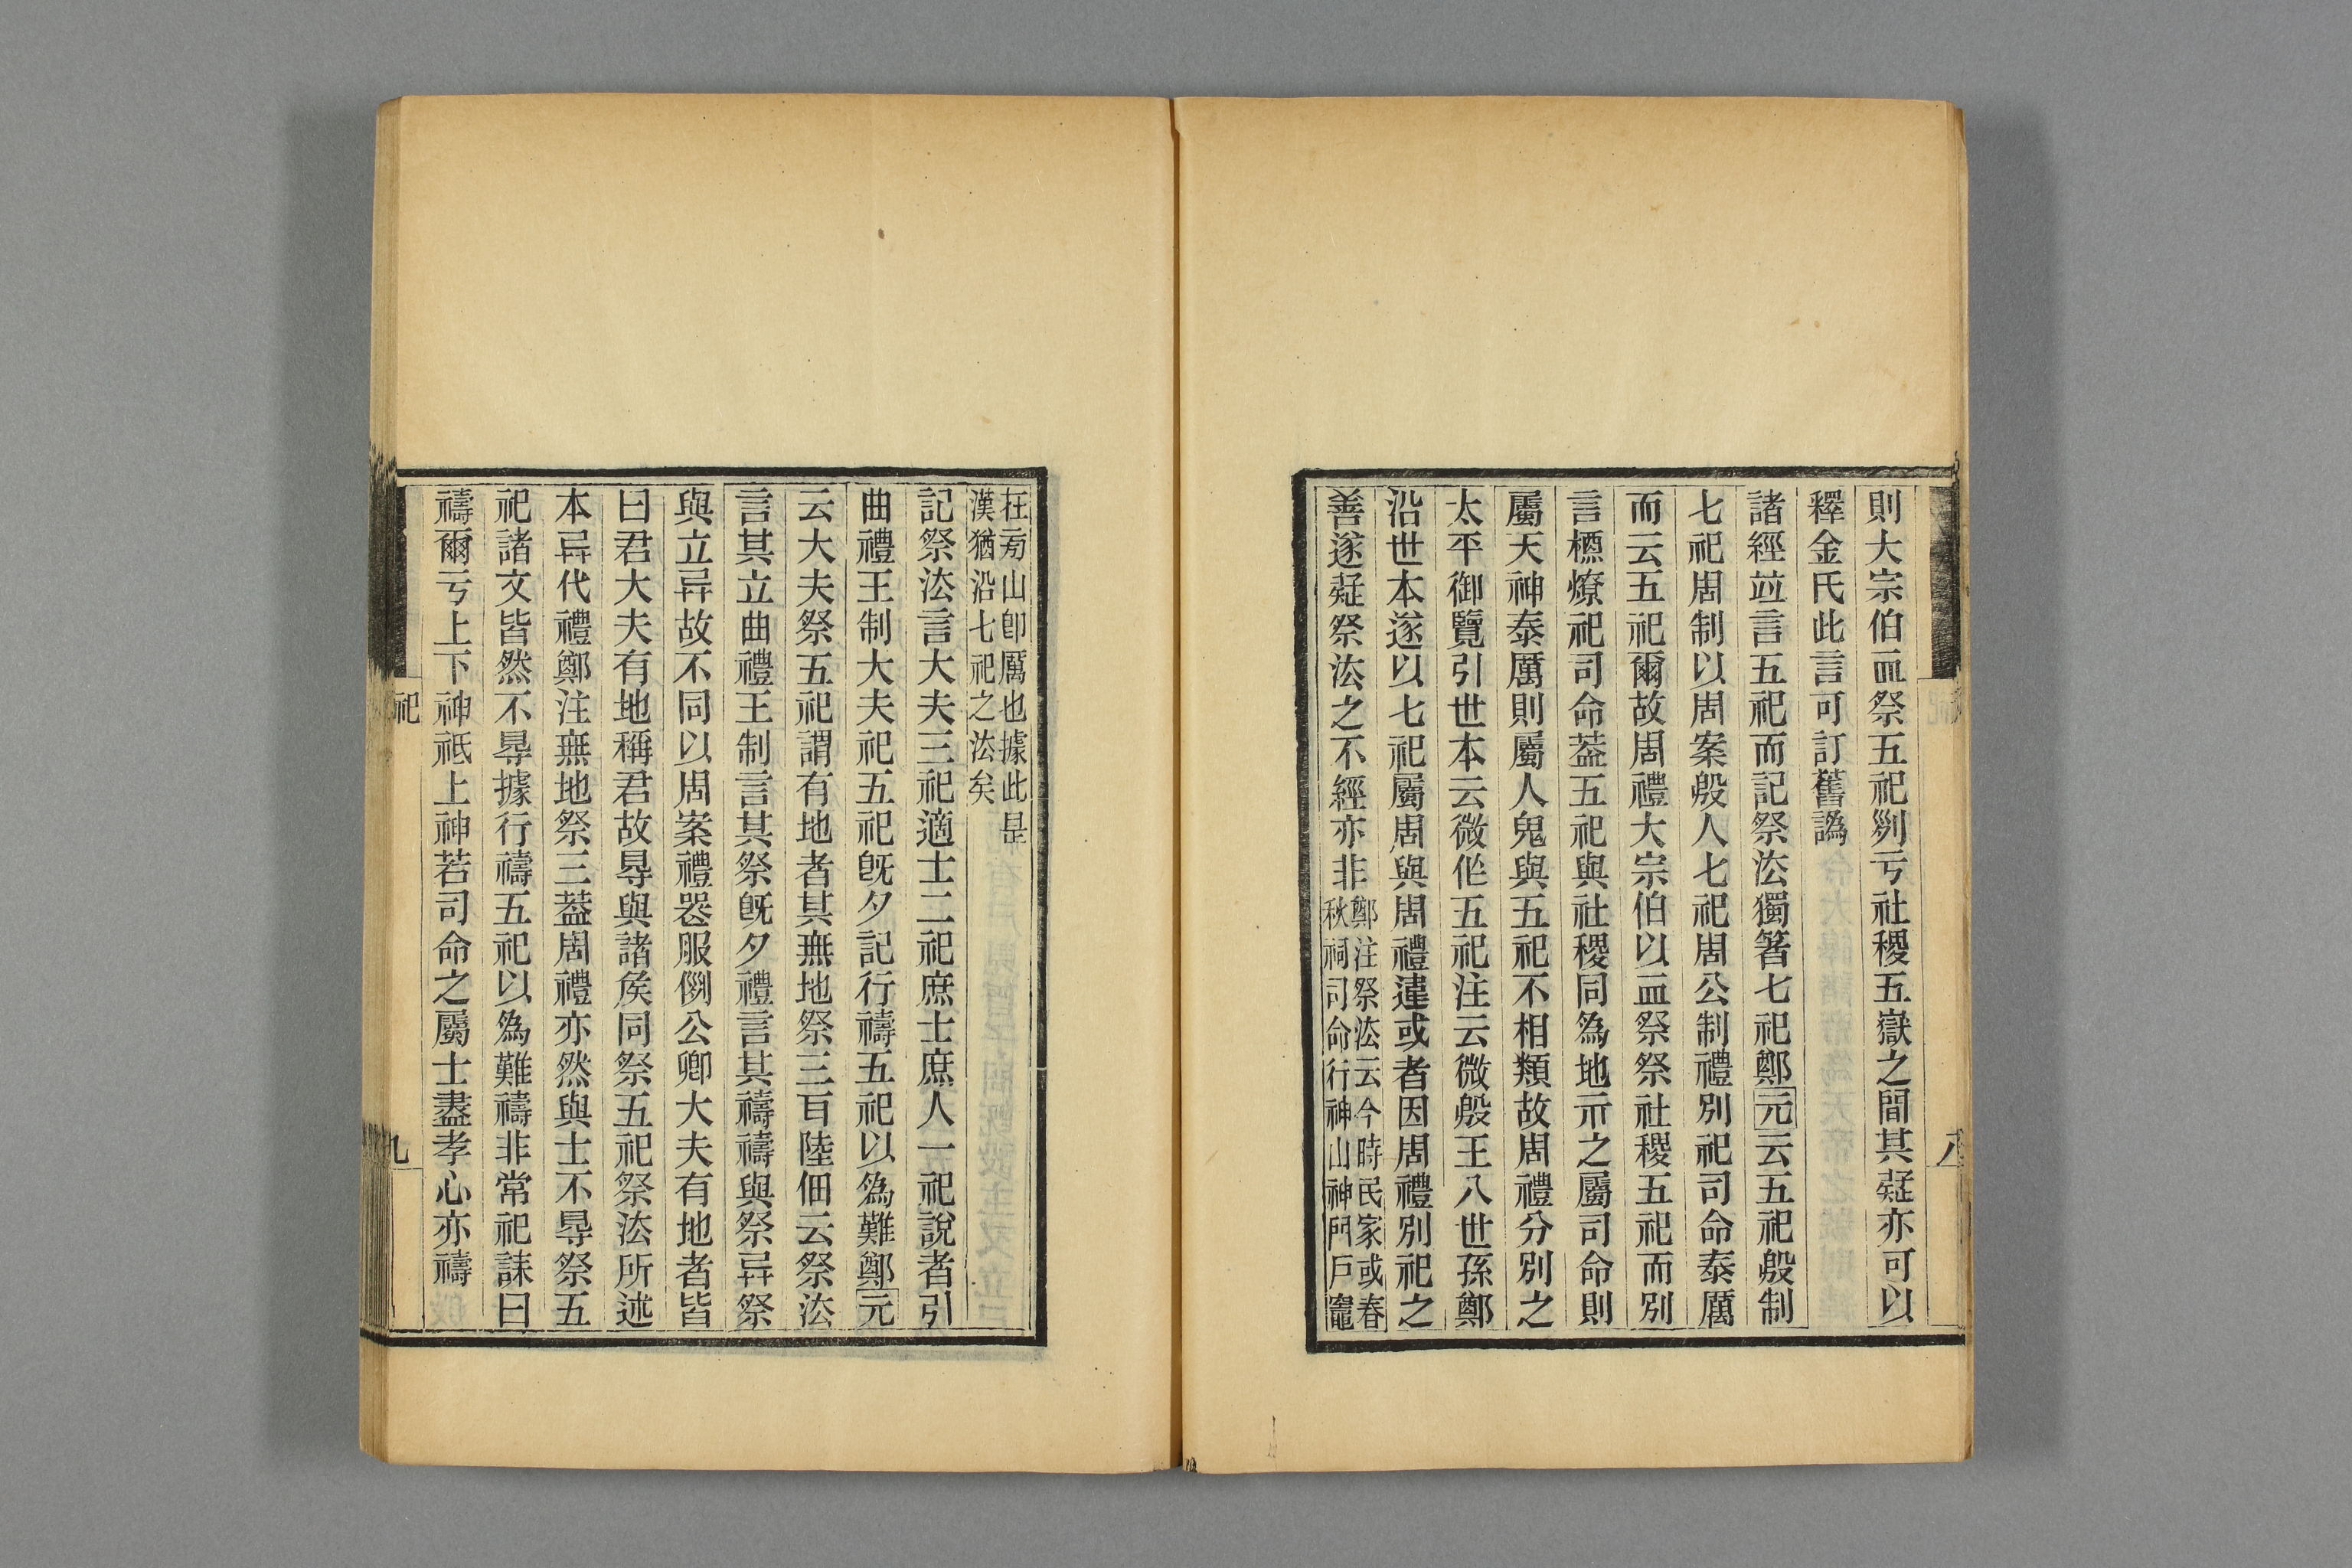 則大宗伯血祭五祀𠛱亏社稷五嶽之閒其疑亦可以
釋金氏此言可訂舊譌
諸經竝言五祀而記祭法獨箸七祀鄭元云五祀殷制
七祀周制以周案殷人七祀周公制禮別祀司命泰厲
而云五祀爾故周禮大宗伯以血祭祭社稷五祀而別
言槱燎祀司命葢五祀與社稷同爲地示之屬司命則
屬天神泰厲則屬人鬼與五祀不相類故周禮分別之
太平御覽引世本云微作五祀注云微殷王八世孫鄭
沿世本遂以七祀屬周與周禮違或者因周禮別祀之
善遂疑祭法之不經亦非鄭注祭法云今時民家或春
秋祠司命行神山神門戶竈
八
在㫄山卽厲也據此是
漢猶沿七祀之法矣
記祭法言大夫三祀適士二祀庶士庶人一祀說者引
曲禮王制大夫祀五祀旣夕記行禱五祀以爲難鄭元
云大夫祭五祀謂有地者其無地祭三百陸佃云祭法
言其立曲禮王制言其祭旣夕禮言其禱禱與祭异祭
與立异故不同以周案禮器服例公卿大夫有地者皆
曰君大夫有地稱君故㝵與諸矦同祭五祀祭法所述
本异代禮鄭注無地祭三葢周禮亦然與士不㝵祭五
祀諸文皆然不㝵據行禱五祀以爲難禱非常祀誄曰
禱爾亏上下神祗上神若司命之屬士盡孝心亦禱
祀
九